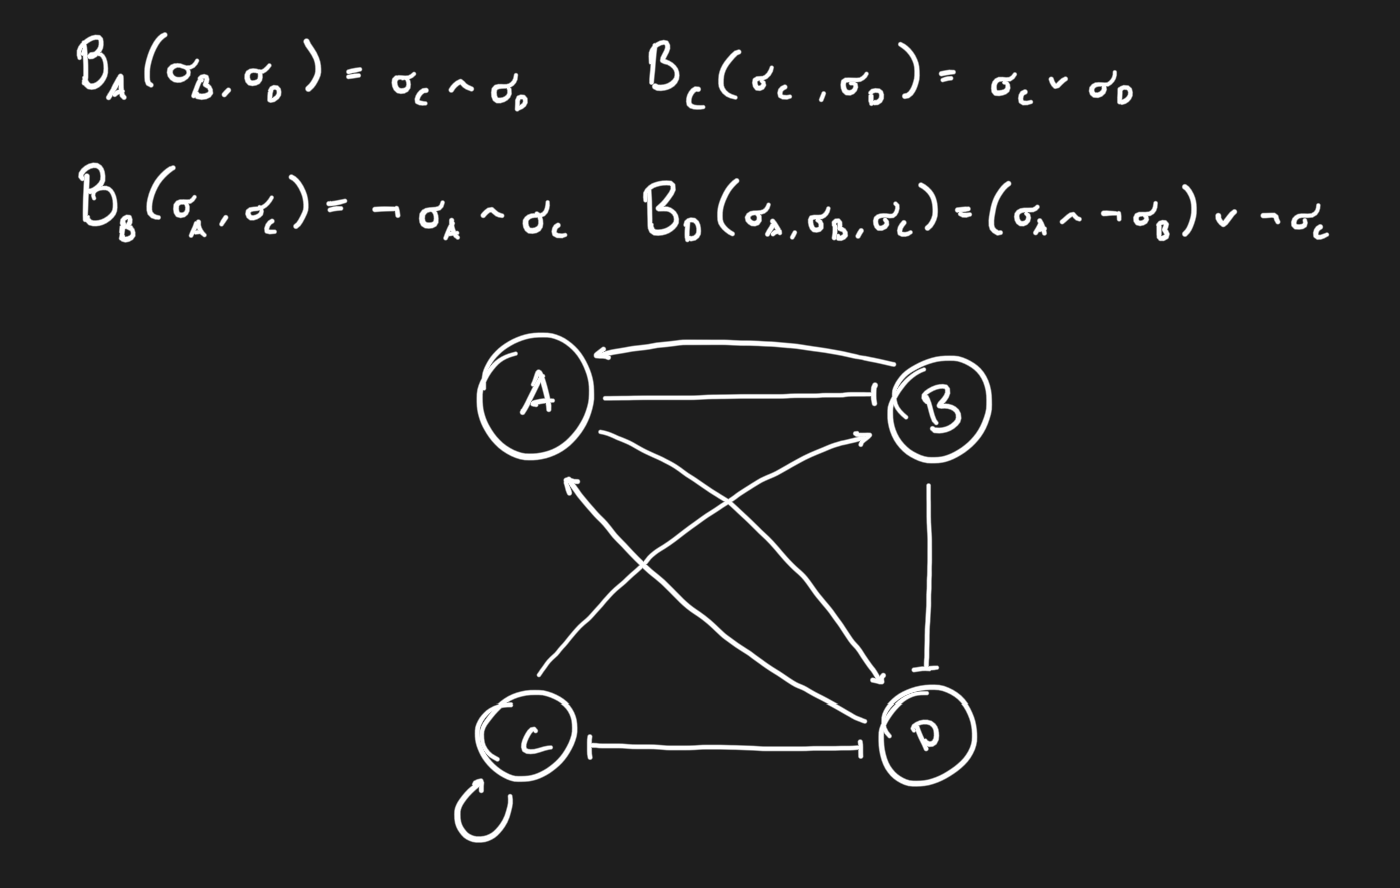 B_A(σ_B, σ_D) = σ_C ∧ σ_D
B_C(σ_C, σ_D) = σ_C ∨ σ_D
B_B(σ_A, σ_C) = ¬ σ_A ∧ σ_C
B_D(σ_A, σ_B, σ_C) = (σ_A ∧ ¬ σ_B) ∨ ¬ σ_C
A
B
C
D